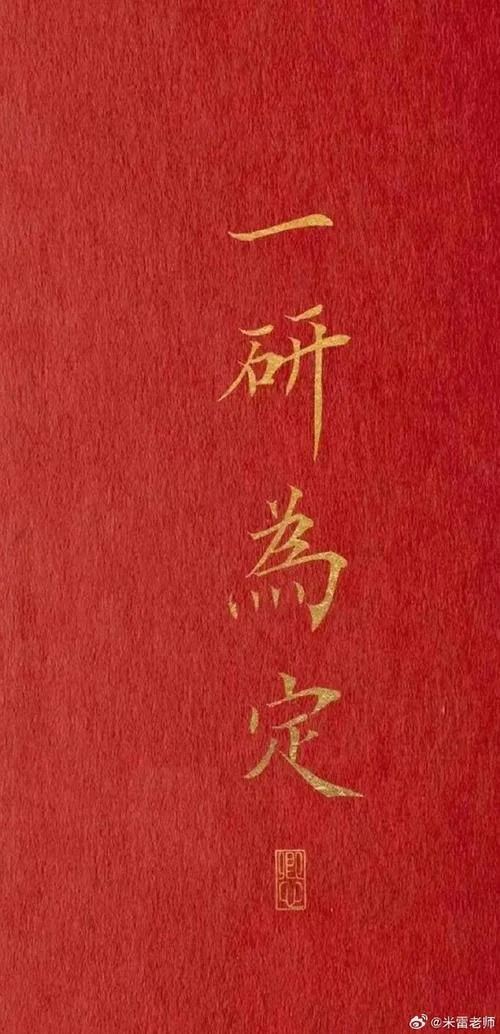 一研為定
@米雷老师